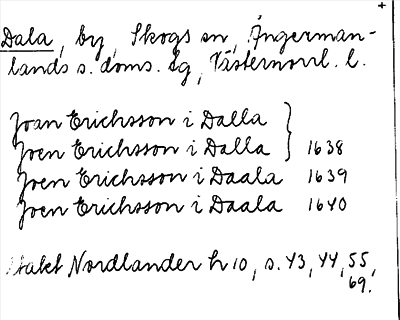 +
Dala, by, Skogs sn, Ångerman-
lands s. doms. lg, Västernorrl. l.
Joan Erichsson i Dalla }
Joen Erichsson i Dalla } 1638
Joen Erichsson i Daala 1639
Joen Erichsson i Daala 1640
Nordlander h 10, s. 43, 44, 55,
69.